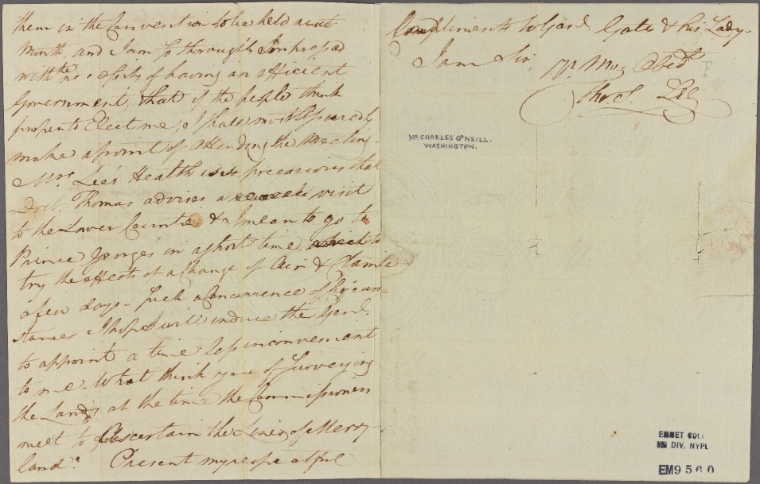 them in the Convention to be held next
Month, and I am so thorough Impressed
with the necessity of having an efficient
Government, that if the people think
proper to Elect me, I shall most sacredly
make a point of attending the Meeting
Mrs. Lee's Health is so precarious that
Doct. Thomas advises a visit
to the Lower Counties & I mean to go to
Prince Georges in a short time to
try the effects of a Change of Air & 
a few days. Such a Concurrence of Circum
stances I hope will induce the Genl.
to appoint a time less inconvenient
to me. What think you of Surveying
the Lands at the time the Commissioners
meet to Ascertain the Lines of Mery
land? Present my respectful
Compliments to Genl. Gates & His Lady.
I am Sir
Yr. Mo. Obed.
Tho. S. Lee
MR CHARLES O'NEILL.
WASHINGTON.
EMMET COLL
MS DIV. NYPL
EM9560